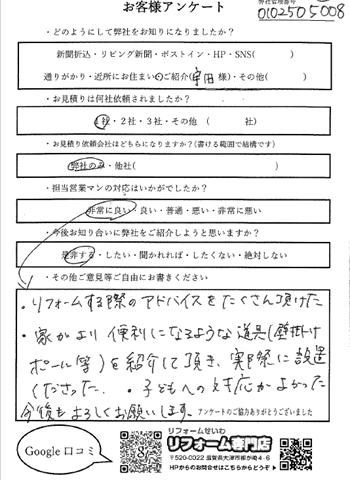 お客様アンケート
弊社管理番号
0102505008
・どのようにして弊社をお知りになりましたか？
新聞折込・リビング新聞・ポストイン・HP・SNS(　　　)
通りがかり・近所にお住まいのご紹介(宇田様)・その他(　　　)
・お見積りは何社依頼されましたか？
1社・2社・3社・その他　(　　　社)
・お見積り依頼会社はどちらになりますか？(書ける範囲で結構です)
弊社のみ・他社(　　　)
・担当営業マンの対応はいかがでしたか？
非常に良い・良い・普通・悪い・非常に悪い
・今後お知り合いに弊社をご紹介しようと思いますか？
是非する・したい・聞かれれば・したくない・絶対しない
・その他ご意見等ご自由にお書きください
・リフォームする際のアドバイスをたくさん頂けた
・家がより便利になるような道具(壁掛け
ポール等)を紹介して頂き、実際に設置
くださった。・子どもへの対応がよかった
今後もよろしくお願いします。アンケートのご協力ありがとうございました
Google 口コミ
リフォームせいわ
リフォーム専門店
〒520-0022 滋賀県大津市柳が崎4-6
HPからのお問合せはこちらからどうぞ